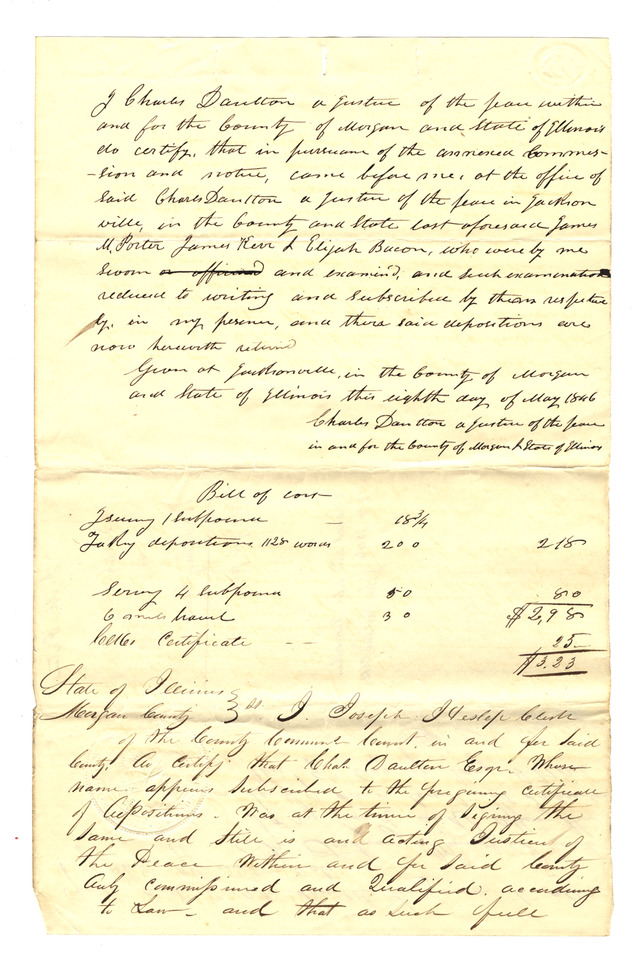 I Charles Daulton a Justice of the peace within
and for the County of Morgan and State of Illinois
do certify, that in pursuance of the annexed Commis-
-sion and notice, came before me, at the office of
said Charles Daulton a Justice of the peace in Jackson
ville, in the County and State last aforesaid James
M. Porter James Kerr & Elijah Bacon, who were by me
sworn or affirmed and examind, and such examination
reduced to writing and subscribed by them respective
ly, in my presence, and there said depositions are
now herewith returnd
Given at Jacksonville, in the County of Morgan
and State of Illinois this eighth day of May 1846
Charles Daulton a Justice of the peace
in and for the County of Morgan & State of Illinois
Bill of cost
Issuing 1 Subpoena — 18 3/4
Taking depositions 1128 words 200 218
Serving 4 Subpoena 50 80
6 miles travel 30 $2,98
Clks Certificate - - 25
$3.23
State of Illinois
Morgan County } ss. I. Joseph Heslep Clerk
of the County Commrs Court. in and for said
County. Do Certify that Chals Daulton Esqr. Whose
name appears subscribed to the foregoing certificate
of Depositions. Was at the time of signing the
same and still is and acting Justice of
the Peace Within and for said County
duly commissioned and Qualified. according
to Law - and that as such full